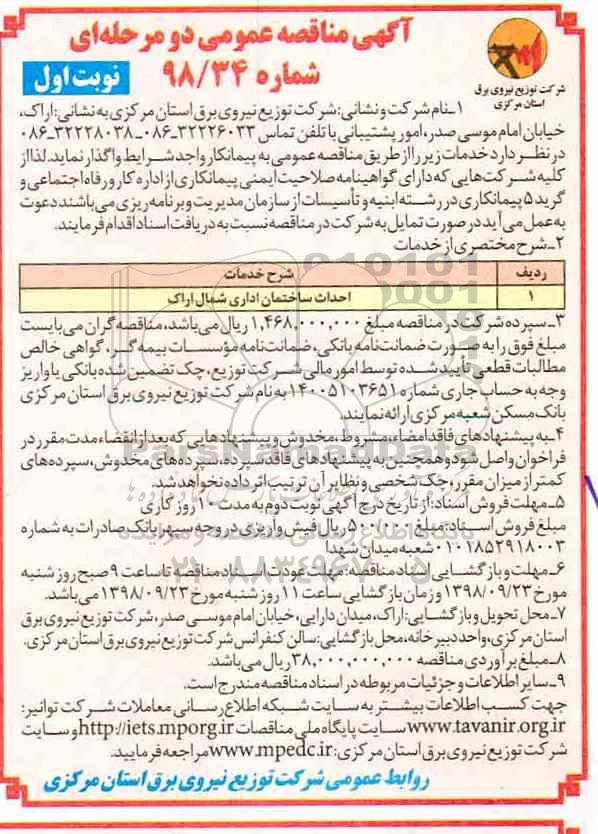 آگهی مناقصه عمومی دو مرحله‌ای
شماره ۹۸/۳۴
نوبت اول
شرکت توزیع نیروی برق
استان مرکزی
۱ـ نام شرکت و نشانی: شرکت توزیع نیروی برق استان مرکزی به نشانی: اراک،
خیابان امام موسی صدر، امور پشتیبانی با تلفن تماس ۳۲۲۲۶۰۳۳-۰۸۶ ـ ۳۲۲۲۸۰۳۸-۰۸۶
در نظر دارد خدمات زیر را از طریق مناقصه عمومی به پیمانکار واجد شرایط واگذار نماید. لذا از
کلیه شرکت‌هایی که دارای گواهینامه صلاحیت ایمنی پیمانکاری از اداره کار و رفاه اجتماعی و
گرید ۵ پیمانکاری در رشته ابنیه و تأسیسات از سازمان مدیریت و برنامه‌ریزی می‌باشند دعوت
به عمل می‌آید در صورت تمایل به شرکت در مناقصه نسبت به دریافت اسناد اقدام فرمایند.
۲ـ شرح مختصری از خدمات
ردیف شرح خدمات
۱ احداث ساختمان اداری شمال اراک
۳ـ سپرده شرکت در مناقصه مبلغ ۱,۴۶۸,۰۰۰,۰۰۰ ریال می‌باشد، مناقصه‌گران می‌بایست
مبلغ فوق را به صورت ضمانت‌نامه بانکی، ضمانت‌نامه مؤسسات بیمه‌گر، گواهی خالص
مطالبات قطعی تأیید شده توسط امور مالی شرکت توزیع، چک تضمین شده بانکی یا واریز
وجه به حساب جاری شماره ۱۴۰۰۵۱۰۳۶۵۱ به نام شرکت توزیع نیروی برق استان مرکزی
بانک مسکن شعبه مرکزی ارائه نمایند.
۴ـ به پیشنهادهای فاقد امضاء، مشروط، مخدوش و پیشنهادهایی که بعد از انقضاء مدت مقرر در
فراخوان واصل شود و همچنین به پیشنهادهای فاقد سپرده، سپرده‌های مخدوش، سپرده‌های
کمتر از میزان مقرر، چک شخصی و نظایر آن ترتیب اثر داده نخواهد شد.
۵ـ مهلت فروش اسناد: از تاریخ درج آگهی نوبت دوم به مدت ۱۰ روز کاری
مبلغ فروش اسناد: مبلغ ۵۰۰/۰۰۰ ریال فیش واریزی در وجه سپهر بانک صادرات به شماره
۰۱۰۱۸۵۲۹۱۸۰۰۳ شعبه میدان شهدا
۶ـ مهلت و بازگشایی اسناد مناقصه: مهلت عودت اسناد مناقصه تا ساعت ۹ صبح روز شنبه
مورخ ۱۳۹۸/۰۹/۲۳ و زمان بازگشایی ساعت ۱۱ روز شنبه مورخ ۱۳۹۸/۰۹/۲۳ می‌باشد.
۷ـ محل تحویل و بازگشایی: اراک، میدان دارایی، خیابان امام موسی صدر، شرکت توزیع نیروی برق
استان مرکزی، واحد دبیرخانه، محل بازگشایی: سالن کنفرانس شرکت توزیع نیروی برق استان مرکزی.
۸ـ مبلغ برآوردی مناقصه ۳۸,۰۰۰,۰۰۰,۰۰۰ ریال می‌باشد.
۹ـ سایر اطلاعات و جزئیات مربوطه در اسناد مناقصه مندرج است.
جهت کسب اطلاعات بیشتر به سایت شبکه اطلاع‌رسانی معاملات شرکت توانیر:
www.tavanir.org.ir سایت پایگاه ملی مناقصات http://iets.mporg.ir و سایت
شرکت توزیع نیروی برق استان مرکزی: www.mpedc.ir مراجعه فرمایید.
روابط عمومی شرکت توزیع نیروی برق استان مرکزی
ParsNamadData
۰۲۱-۸۸۳۴۹۶۷۰-۵